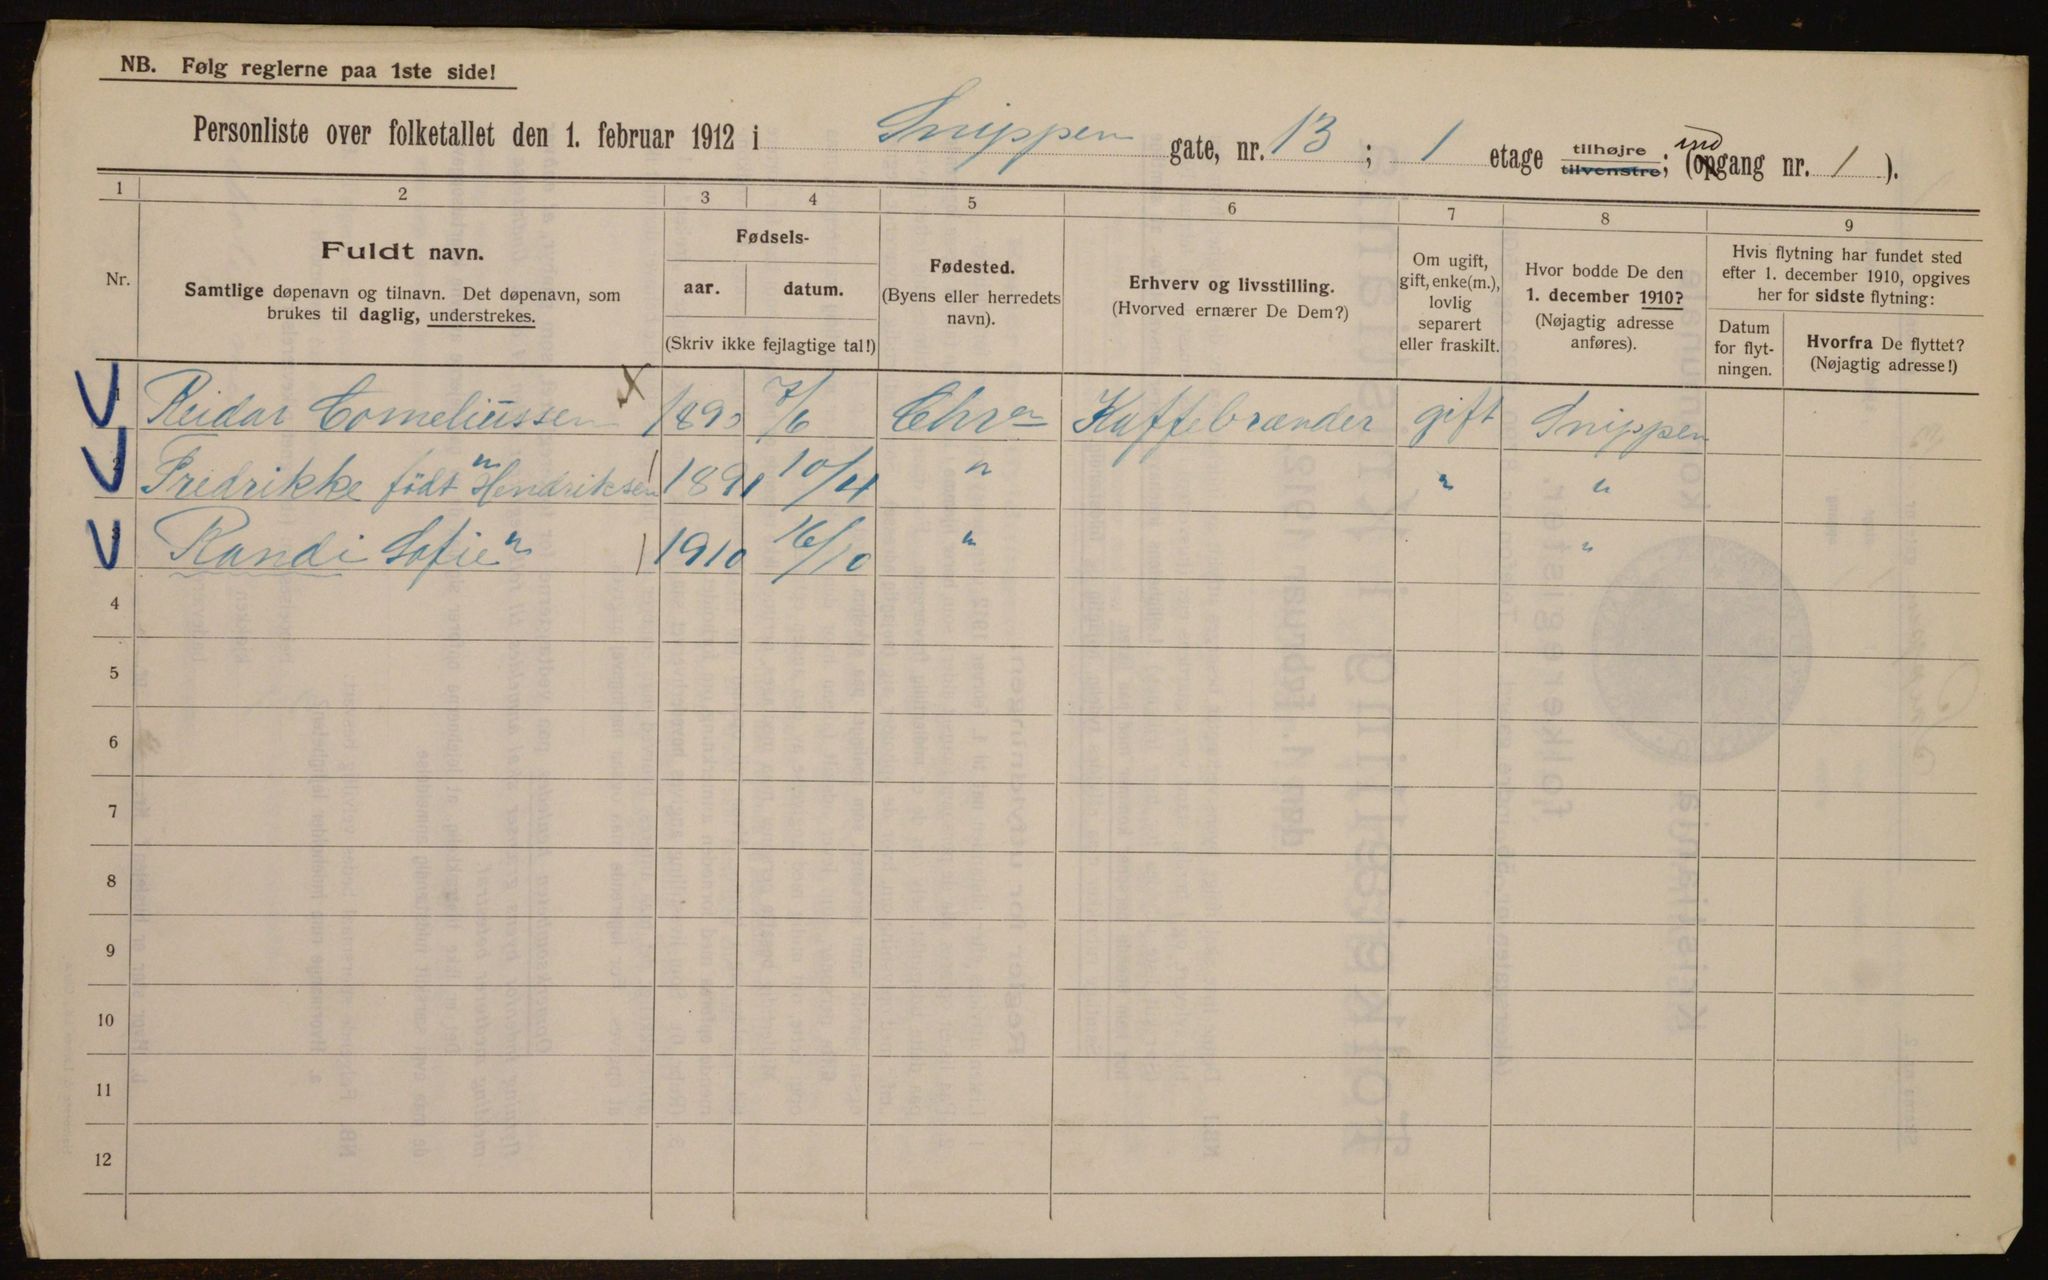 NB. Følg reglerne paa 1ste side!
Personliste over folketallet den 1. februar 1912 i Snippen gate, nr. 13; 1 etage tilhøjre tilvenstre; (opgang ind nr. 1).
1 2 3 4 5 6 7 8 9
Nr.
Fuldt navn.
Samtlige døpenavn og tilnavn. Det døpenavn, som
brukes til daglig, understrekes.
Fødsels-
aar. datum.
(Skriv ikke fejlagtige tal!)
Fødested.
(Byens eller herredets
navn).
Erhverv og livsstilling.
(Hvorved ernærer De Dem?)
Om ugift,
gift, enke(m.),
lovlig
separert
eller fraskilt.
Hvor bodde De den
1. december 1910?
(Nøjagtig adresse
anføres).
Hvis flytning har fundet sted
efter 1. december 1910, opgives
her for sidste flytning:
Datum
for flyt-
ningen.
Hvorfra De flyttet?
(Nøjagtig adresse!)
1 Reidar Corneliussen x 1890 7/6 Chr.en Kaffebrænder gift Snippen
2 Fredrikke " født Hendriksen 1891 10/4 " " "
3 Randi Sofie " 1910 16/10 " "
4
5
6
7
8
9
10
11
12